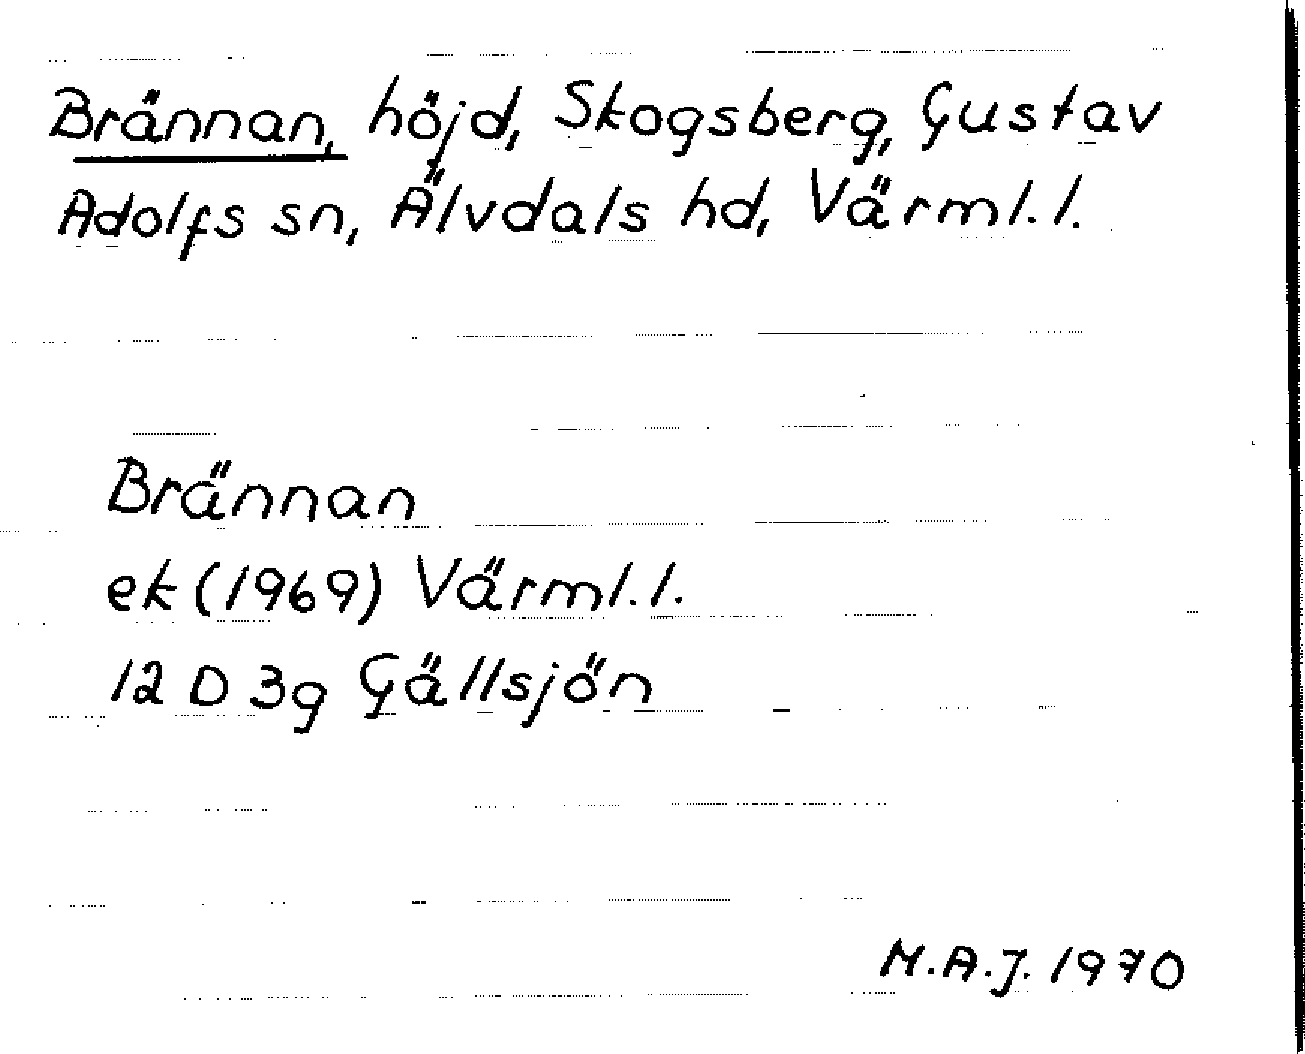 Brännan, höjd, Skogsberg, Gustav
Adolfs sn, Älvdals hd, Värml. l.
Brännan
ek (1969) Värml. l.
12 D 3g Gällsjön
M.A.J. 1970